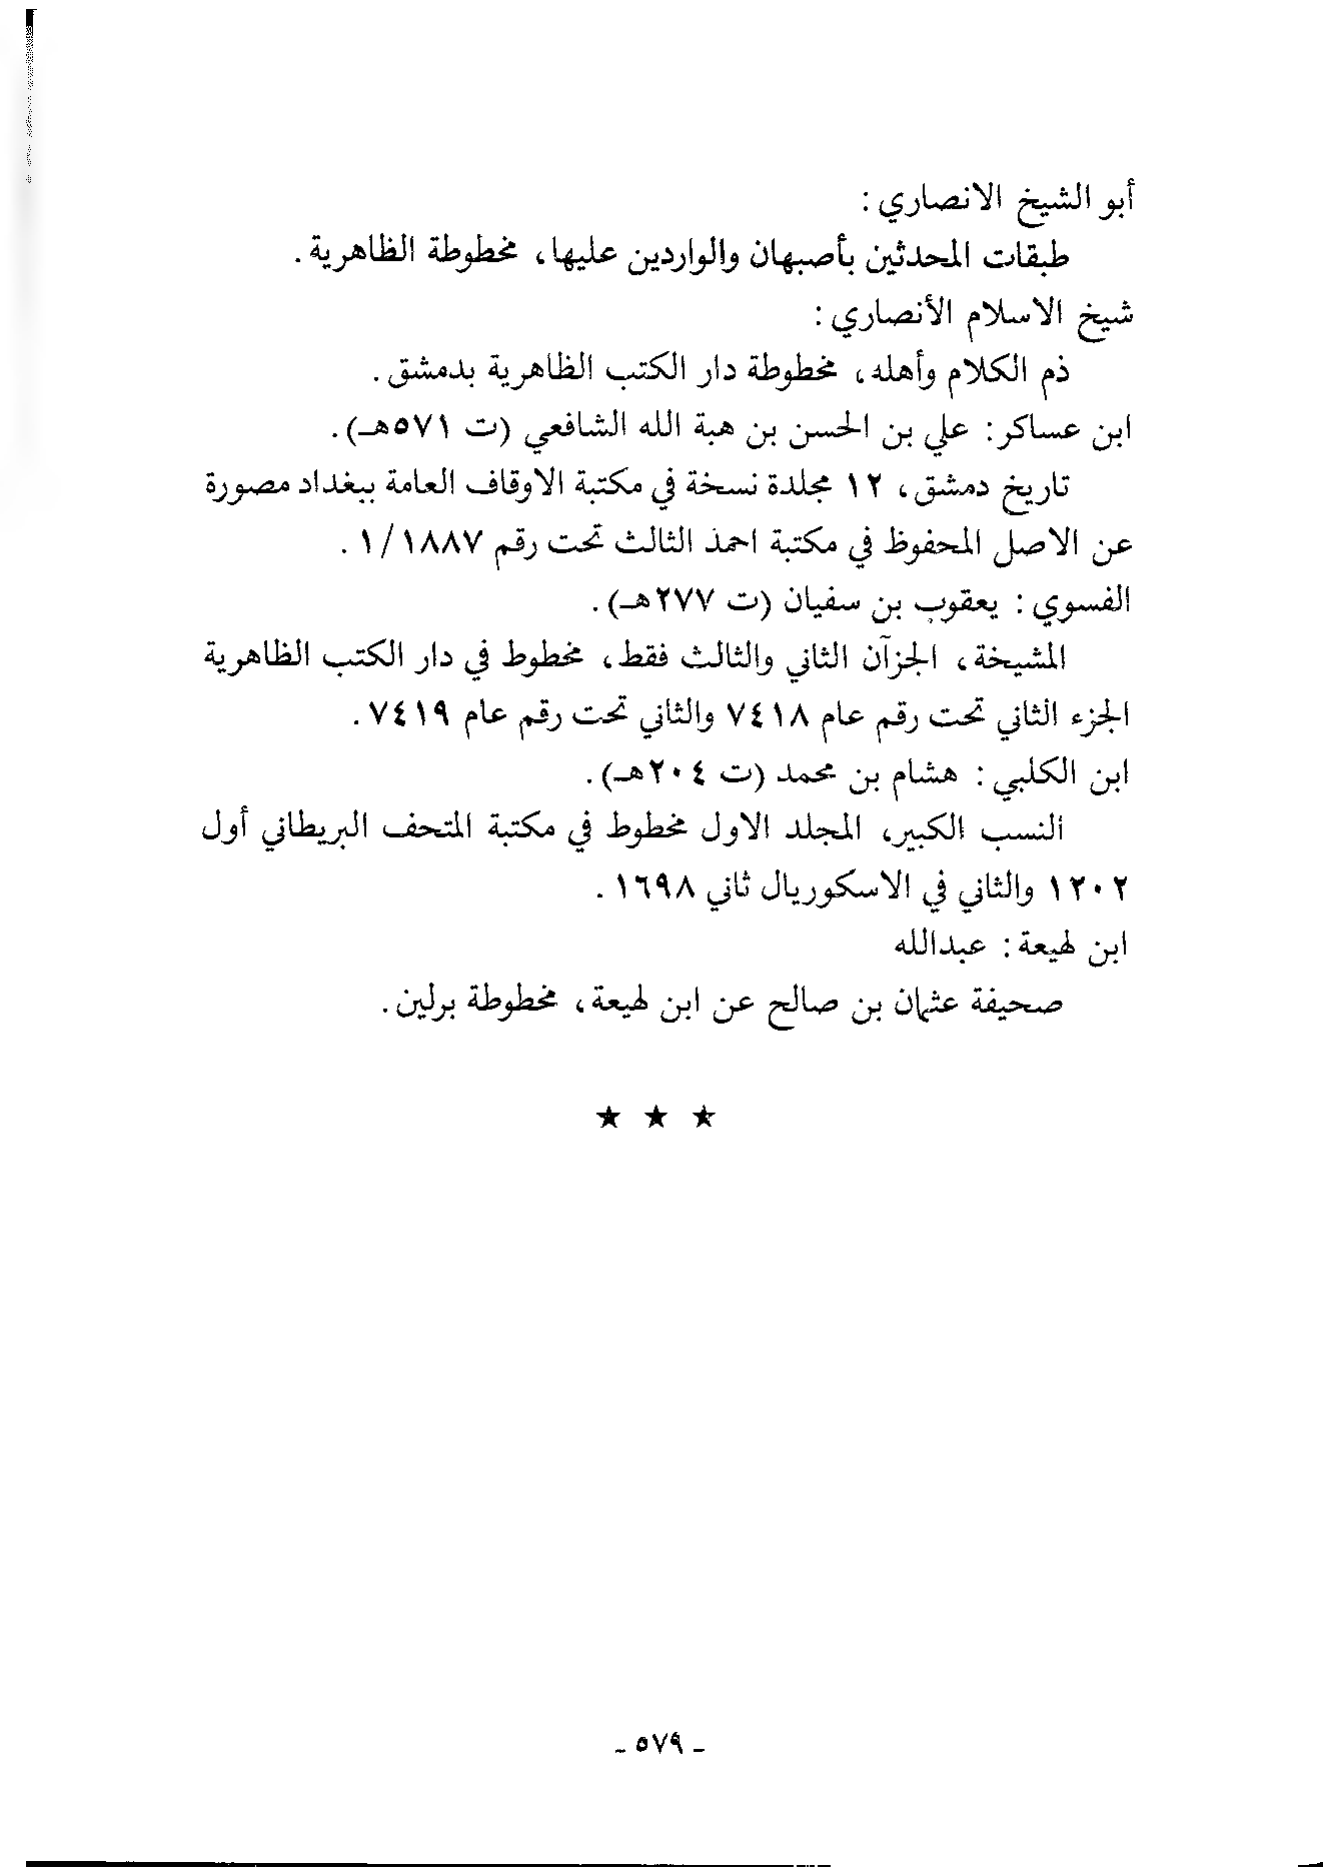 أبو الشيخ الانصاري :
طبقات المحدثين بأصبهان والواردين عليها، مخطوطة الظاهرية .
شيخ الاسلام الأنصاري :
ذم الكلام وأهله، مخطوطة دار الكتب الظاهرية بدمشق .
ابن عساكر : علي بن الحسن بن هبة الله الشافعي (ت ٥٧١هـ) .
تاريخ دمشق، ١٢ مجلدة نسخة في مكتبة الاوقاف العامة ببغداد مصورة
عن الاصل المحفوظ في مكتبة احمذ الثالث تحت رقم ١/١٨٨٧ .
الفسوي : يعقوب بن سفيان (ت ٢٧٧هـ) .
المشيخة، الجزآن الثاني والثالث فقط، مخطوط في دار الكتب الظاهرية
الجزء الثاني تحت رقم عام ٧٤١٨ والثاني تحت رقم عام ٧٤١٩ .
ابن الكلبي : هشام بن محمد (ت ٢٠٤هـ) .
النسب الكبير، المجلد الاول مخطوط في مكتبة المتحف البريطاني أول
١٢٠٢ والثاني في الاسكوريال ثاني ١٦٩٨ .
ابن لهيعة : عبدالله
صحيفة عثمان بن صالح عن ابن لهيعة، مخطوطة برلين .
★ ★ ★
ـ ٥٧٩ ـ